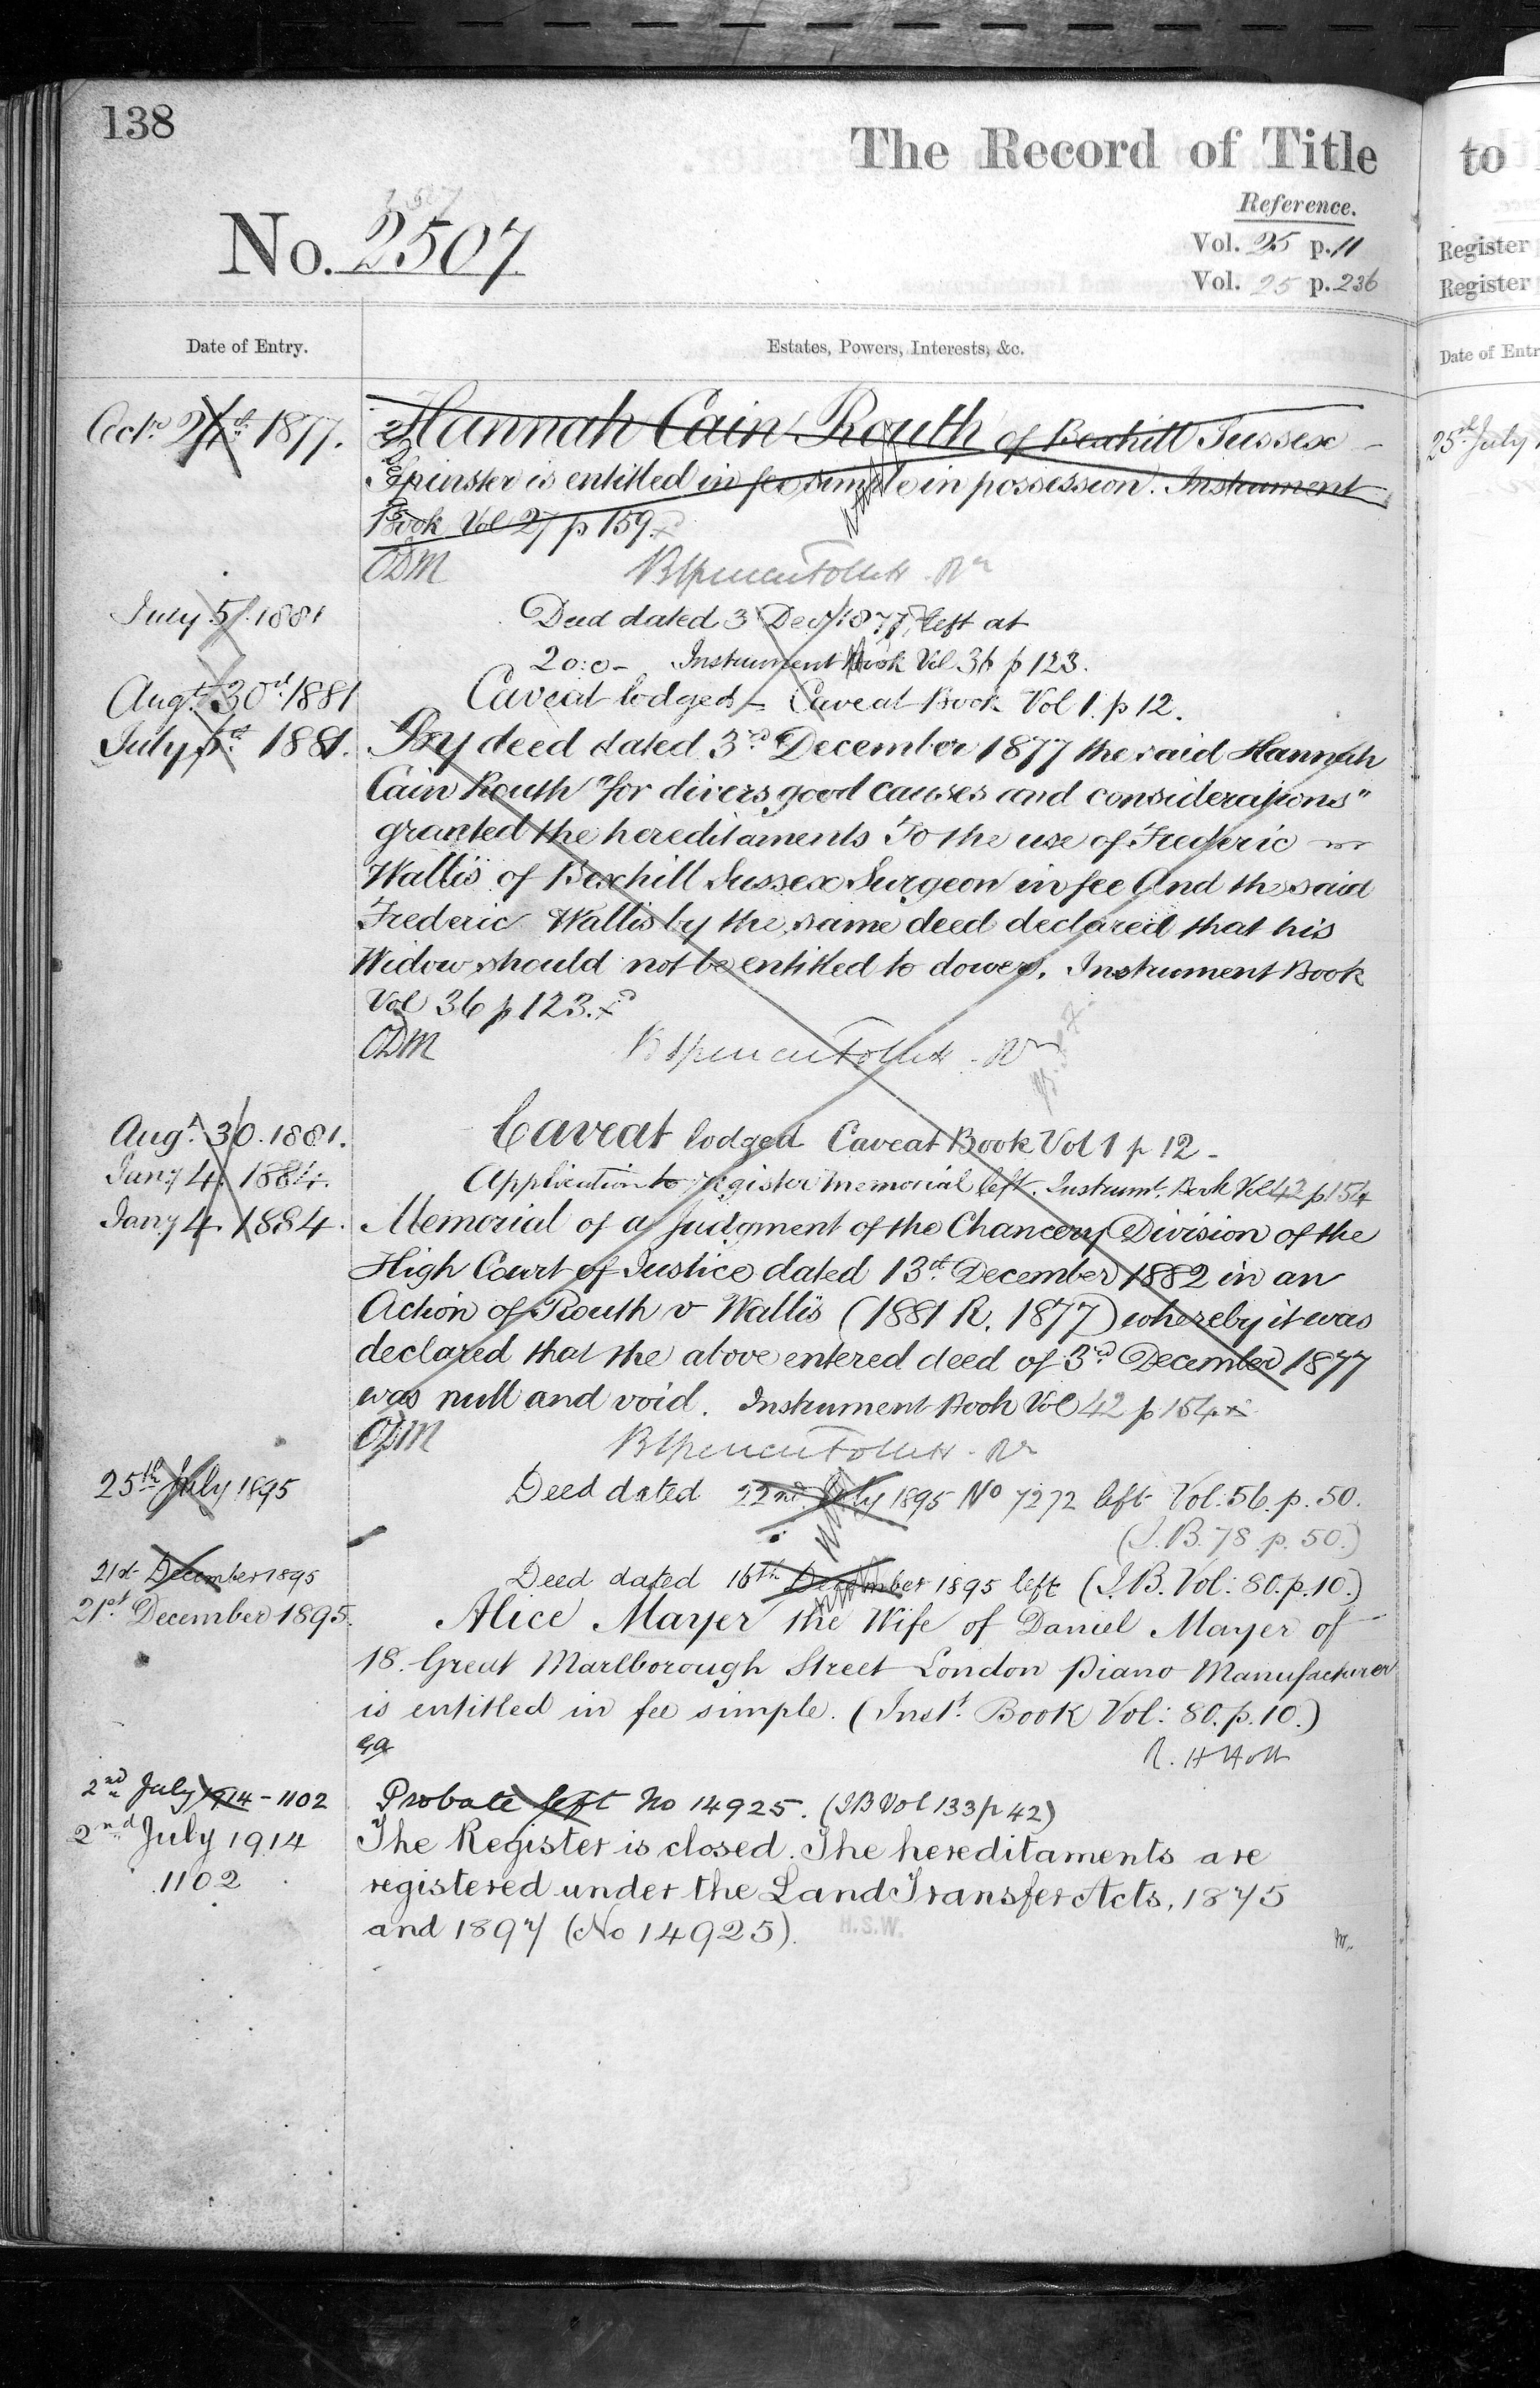 138
The Record of Title
to
Reference.
No. 2507
Vol. 25 p. 11
Register
Vol. 25 p. 236
Register
Date of Entry.
Estates, Powers, Interests, &c.
Date of Entr
Octr. 1877. Hannah Cain Routh of Bexhill Sussex
Spinster is entitled in fee simple in possession. Instrument
Book Vol 27 p 159.
ODM
25th July
July 5. 1881 Deed dated 3 Decr 1877, left at
20:0 - Instrument Book Vol 36 p 123.
Augt. 30th. 1881 Caveat lodged - Caveat Book Vol 1. p 12.
July 5th. 1881. By deed dated 3rd December 1877 the said Hannah
Cain Routh "for divers good causes and considerations"
granted the hereditaments To the use of Frederic
Wallis of Bexhill Sussex Surgeon in fee And the said
Frederic Wallis by the same deed declared that his
Widow should not be entitled to dower. Instrument Book
Vol 36 p 123.
ODM
Augt. 30. 1881. Caveat lodged Caveat Book Vol 1 p 12 -
Jany 4. 1884. Application to register memorial left. Instrumt. Book Vol 42 p 154
Jany 4 1884. Memorial of a Judgment of the Chancery Division of the
High Court of Justice dated 13th. December 1882 in an
Action of Routh v Wallis (1881 R. 1877) whereby it was
declared that the above entered deed of 3rd December 1877
was null and void. Instrument Book Vol 42 p 154
ODM
25th July 1895 Deed dated 22nd July 1895 No 7272 left Vol: 56. p. 50.
(I.B. 78. p. 50.)
21st December 1895 Deed dated 16th December 1895 left (I.B. Vol: 80. p. 10.)
21st December 1895. Alice Mayer the Wife of Daniel Mayer of
18. Great Marlborough Street London Piano Manufacturer
is entitled in fee simple. (Inst. Book Vol: 80. p. 10.)
R. H Holt
2nd July 1914 - 1102 Probate left No 14925. (IB Vol 133 p 42)
2nd July 1914 The Register is closed. The hereditaments are
1102 registered under the Land Transfer Acts, 1875
and 1897 (No 14925). H.S.W.